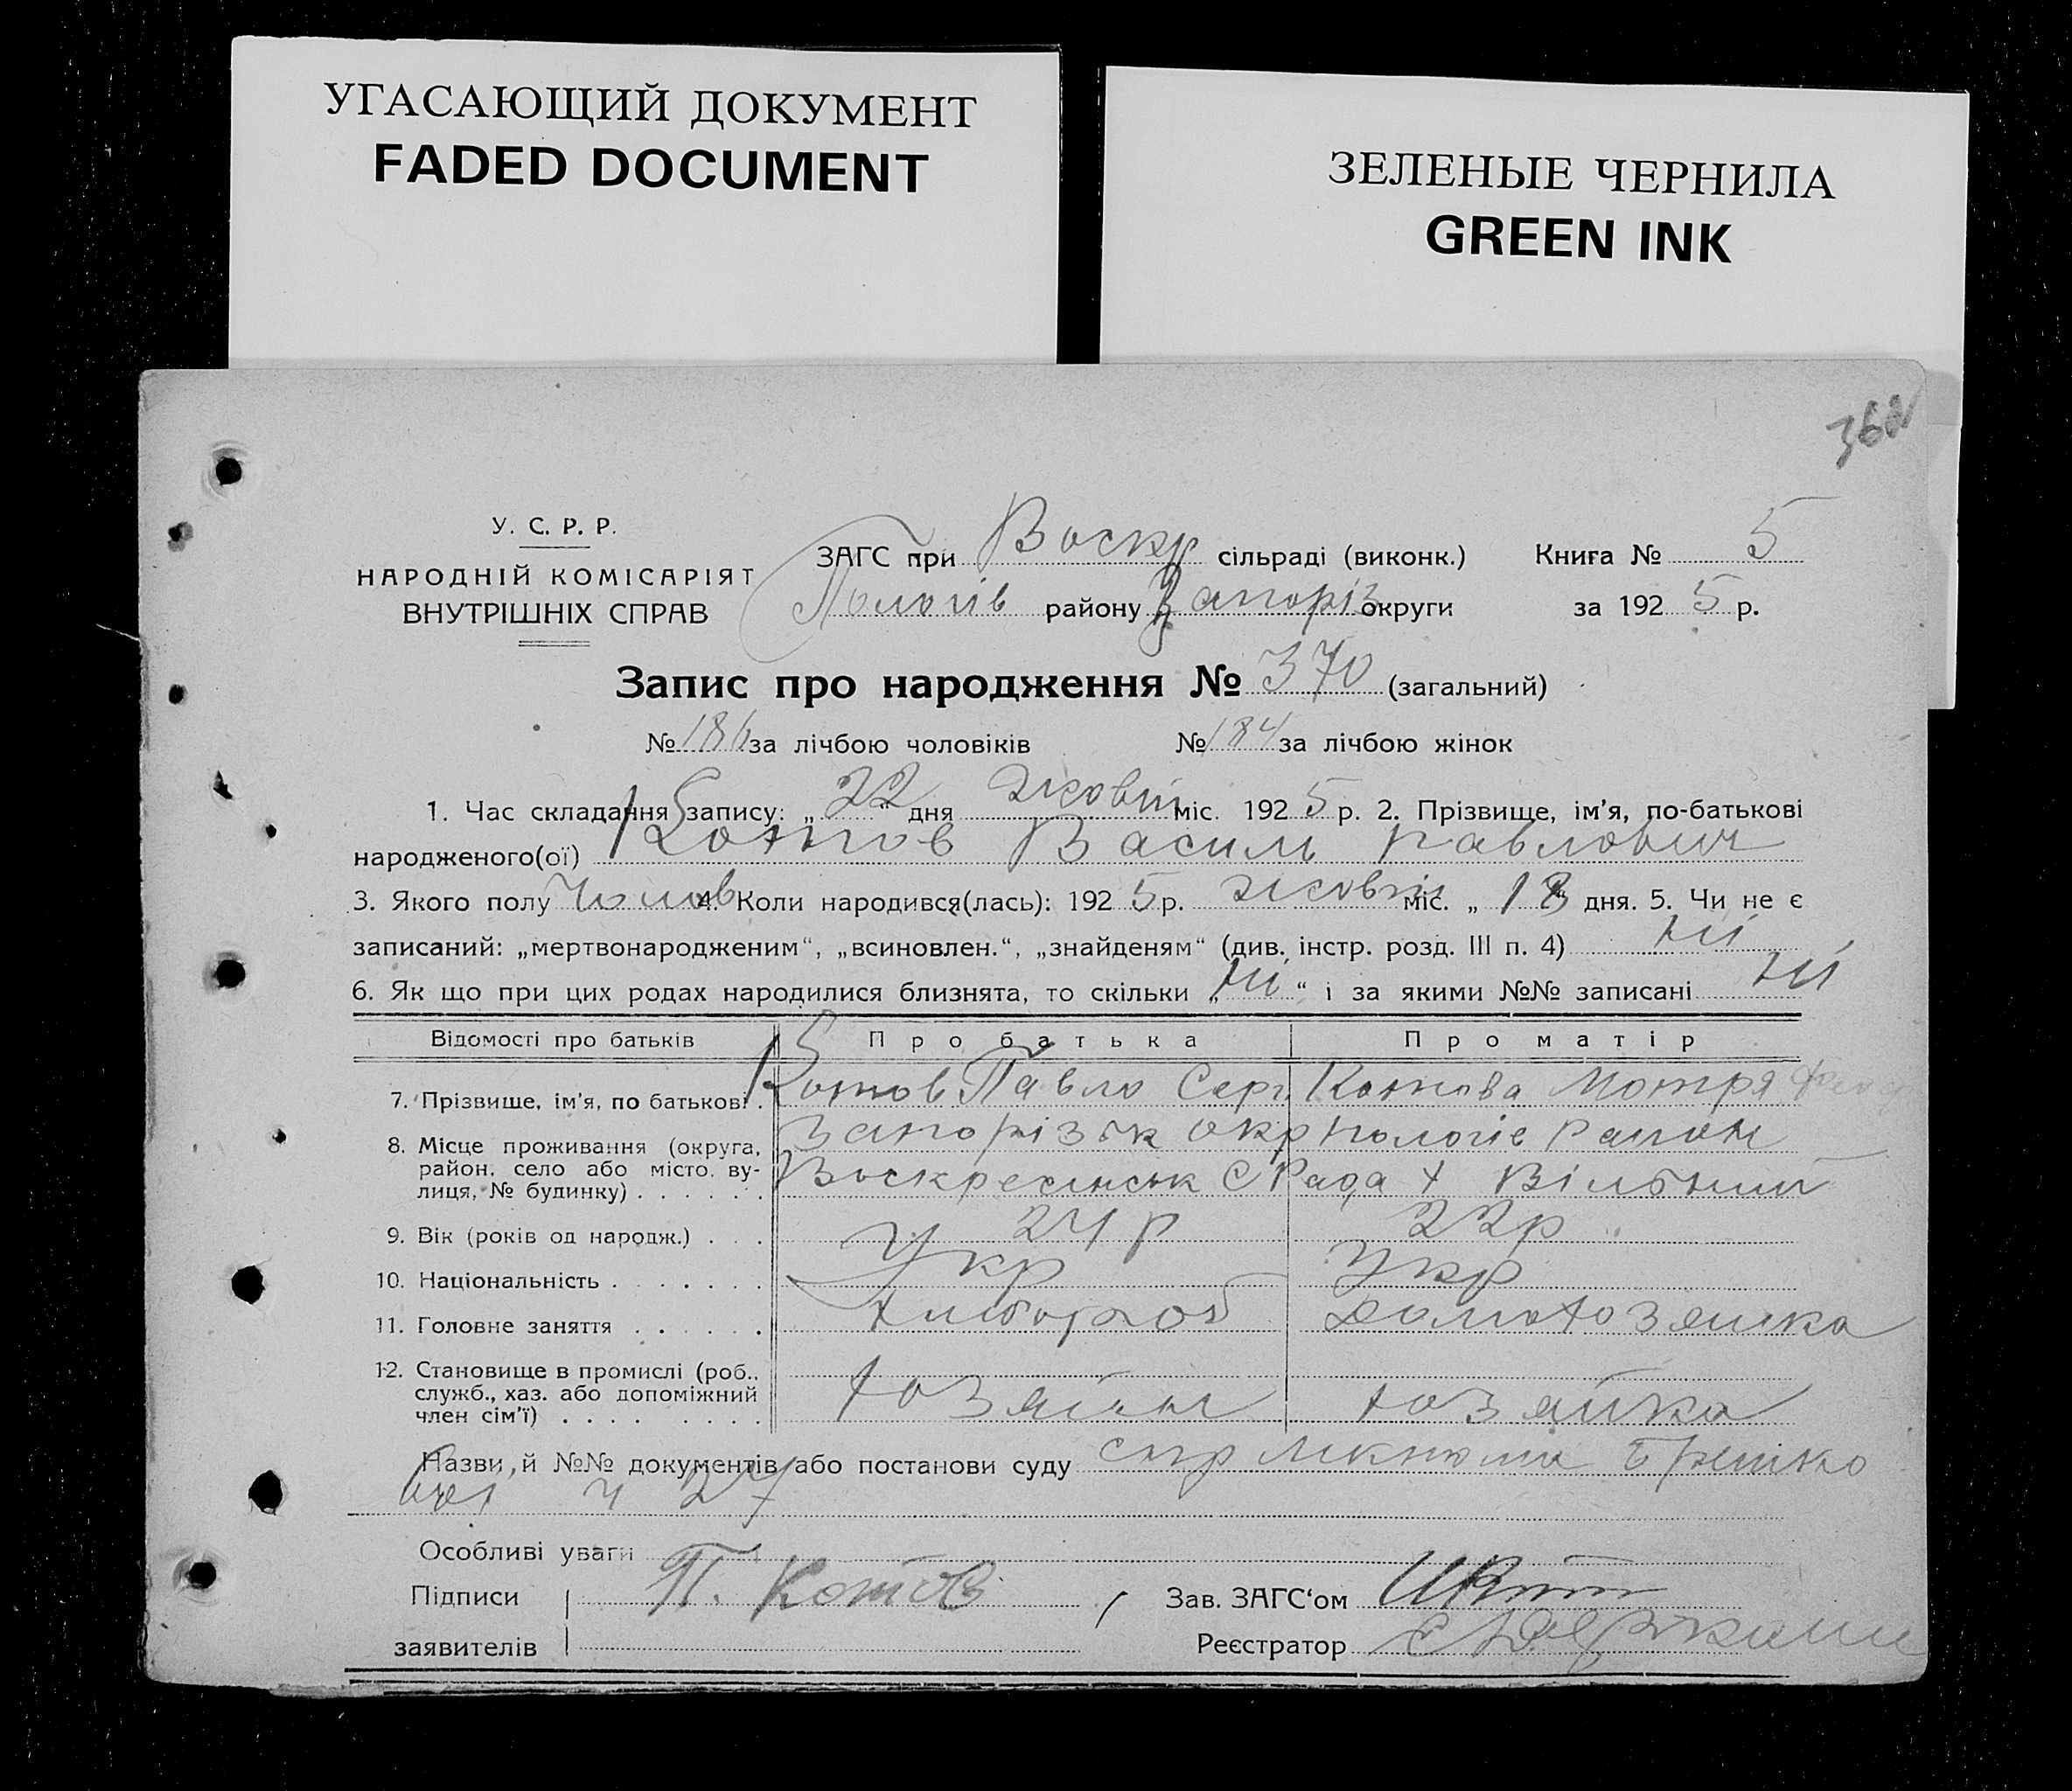 УГАСАЮЩИЙ ДОКУМЕНТ
FADED DOCUMENT
ЗЕЛЕНЫЕ ЧЕРНИЛА
GREEN INK
362
У. С. Р. Р.
НАРОДНІЙ КОМІСАРІЯТ
ВНУТРІШНІХ СПРАВ
ЗАГС при Воскр сільраді (виконк.) Книга № 5
Пологів району Запоріз округи за 1925 р.
Запис про народження № 370 (загальний)
№ 186 за лічбою чоловіків № 184 за лічбою жінок
1. Час складання запису: „22“ дня жовтн міс. 1925 р. 2. Прізвище, ім’я, по-батькові
народженого(ої) Котов Василь Павлович
3. Якого полу Чолов 4. Коли народився(лась): 1925 р. жовтн міс. „18“ дня. 5. Чи не є
записаний: „мертвонародженим“, „всиновлен.“, „знайденям“ (див. інстр. розд. III п. 4) ні
6. Як що при цих родах народилися близнята, то скільки „ні“ і за якими №№ записані ні
Відомості про батьків Про батька Про матір
7. Прізвище, ім’я, по батькові . Котов Павло Серг Котова Мотря
8. Місце проживання (округа, район, село або місто, вулиця, № будинку) . . . . . . Запорізьк окр Пологів район
Воскресенськ С Рада х Вільний
9. Вік (років од народж.) . . . 24 р 22 р
10. Національність . . . . . . . Укр Укр
11. Головне заняття . . . . . . хлібороб домохозяйка
12. Становище в промислі (роб., служб., хаз. або допоміжний член сім’ї) . . . . . . . . хозяін хозяйка
Назви й №№ документів або постанови суду
ч 27
Особливі уваги
Підписи П. Котов Зав. ЗАГС‘ом
заявителів Реєстратор